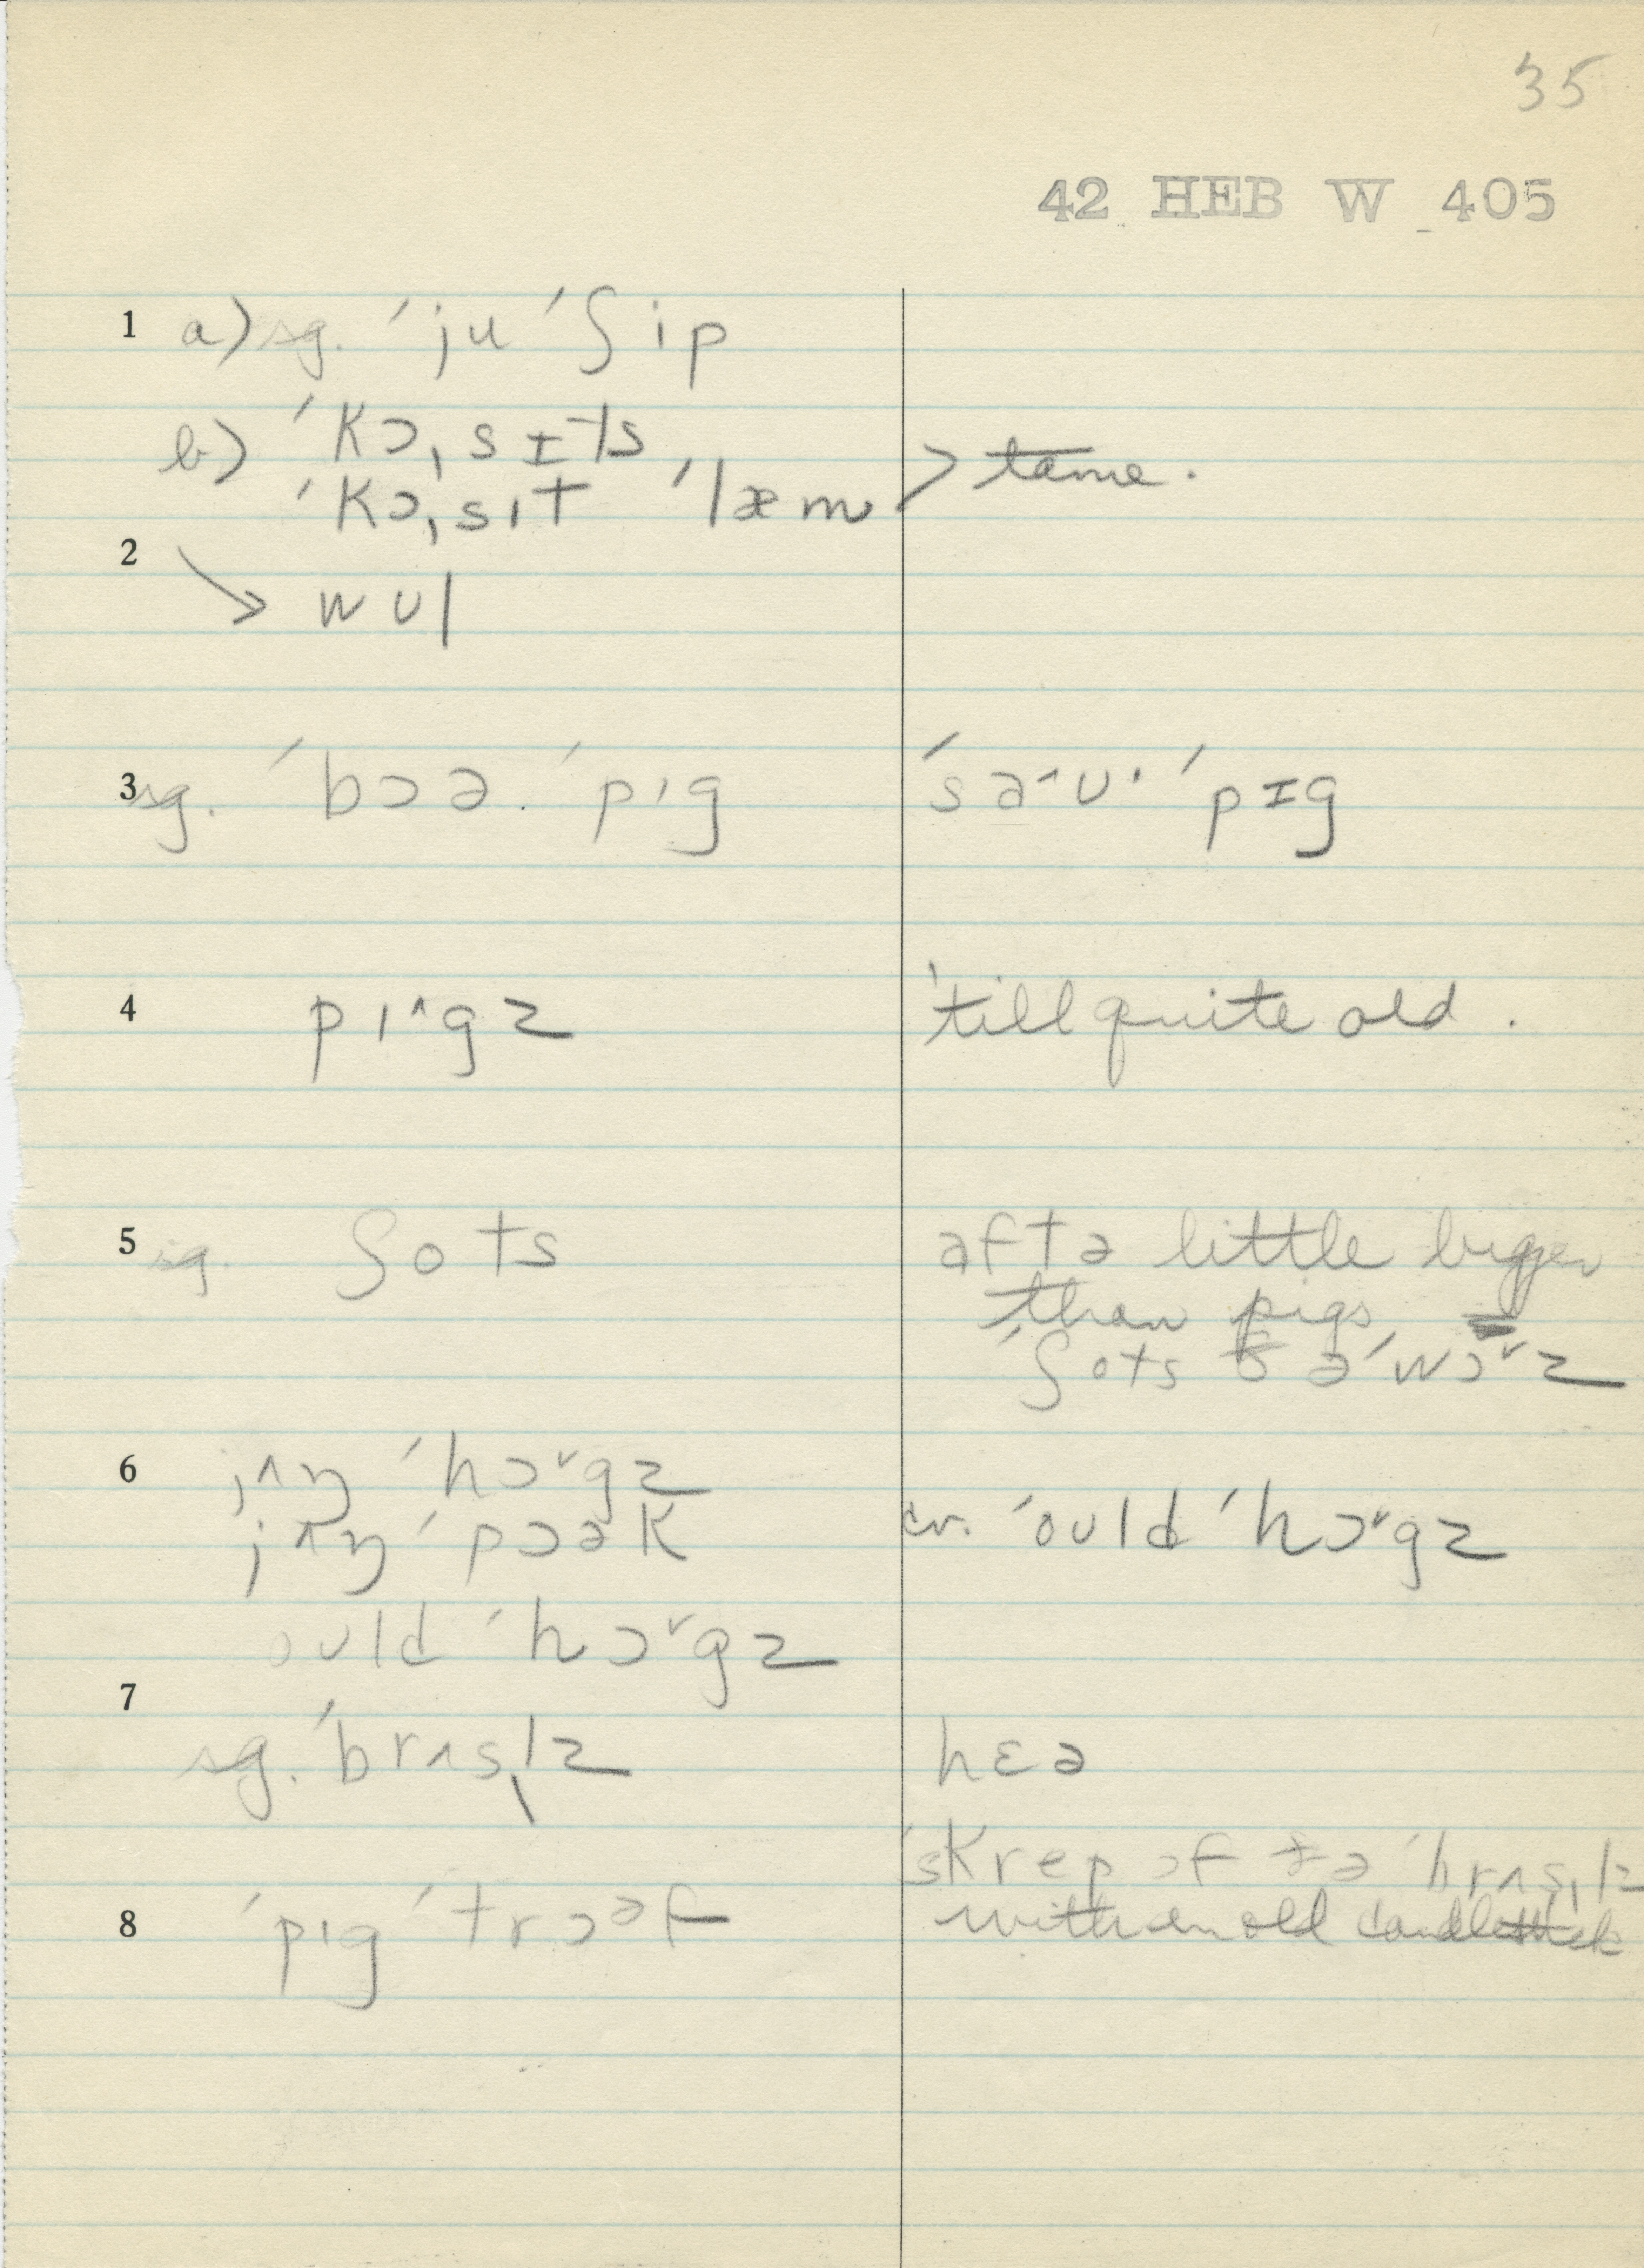 35
42 HEB W 405
1 a) sg. ˈju ˈʃip
b) ˈkɔˌsɪts
ˈkɔˌsɪt ˈlæm > tame.
2
→ wʊl
3 sg. ˈbɔə. ˈpɪg ˈsə^ʊ· ˈpɪg
4 pɪ^gz 'till quite old.
5 sg. ʃots aftə little bigger
than pigs
ˈʃots ðəˈwɔ˅z
6 jʌŋ ˈhɔ˅gz
jʌŋ ˈpɔək cr. ˈoʊld ˈhɔ˅gz
oʊld ˈhɔ˅gz
7
sg. ˈbrʌsl̩z hɛə
ˈskrep ɔf ðə ˈbrʌsl̩z
8 ˈpɪg ˈtrɔəf with an old candlestick